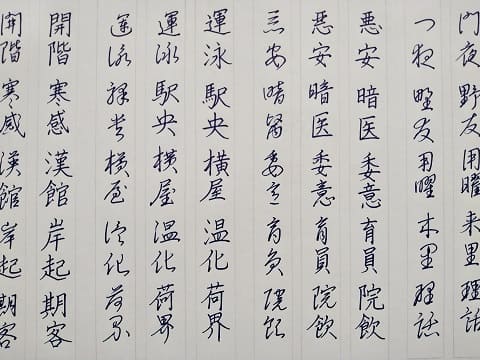 門夜野友用曜来里理話
門夜野友用曜来里理話
悪安暗医委意育員院飲
悪安暗医委意育員院飲
悪安暗医委意育員院飲
運泳駅央横屋温化荷界
運泳駅央横屋温化荷界
運泳駅央横屋温化荷界
開階寒感漢館岸起期客
開階寒感漢館岸起期客